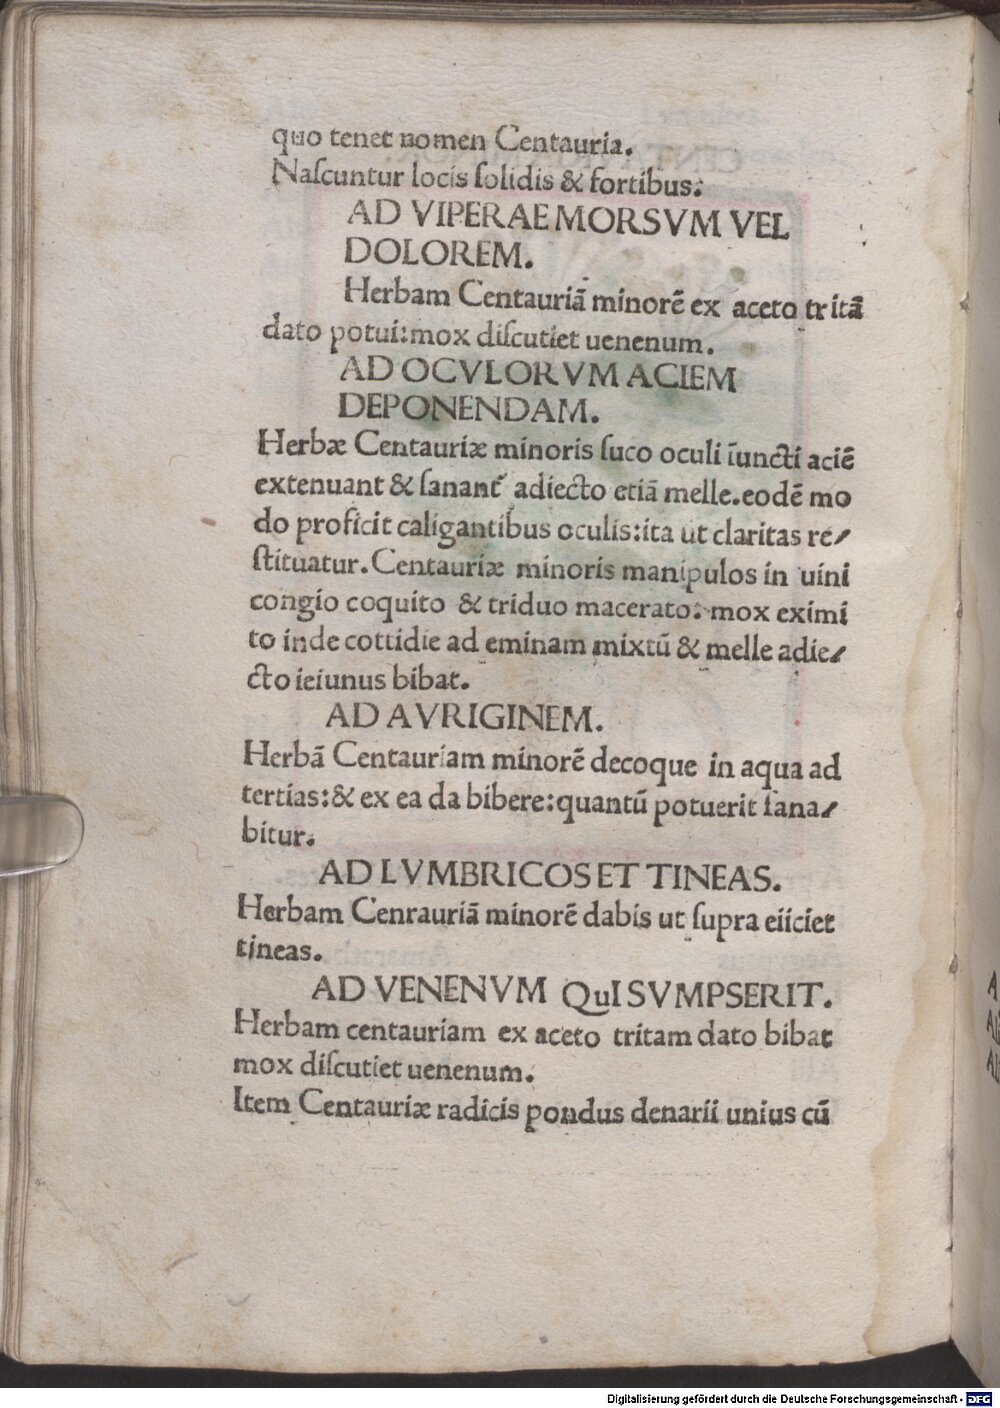 quo tenet nomen Centauria.
Naſcuntur locis ſolidis & fortibus:
AD VIPERAE MORSVM VEL
DOLOREM.
Herbam Centauriā minorē ex aceto tritā
dato potui: mox diſcutiet uenenum.
AD OCVLORVM ACIEM
DEPONENDAM.
Herbæ Centauriæ minoris ſuco oculi īuncti aciē
extenuant & ſanant᷑ adiecto etiā melle. eodē mo
do proficit caligantibus oculis: ita ut claritas re⸗
ſtituatur. Centauriæ minoris manipulos in uini
congio coquito & triduo macerato: mox eximi
to inde cottidie ad eminam mixtū & melle adie⸗
cto ieiunus bibat.
AD AVRIGINEM.
Herbā Centauriam minorē decoque in aqua ad
tertias: & ex ea da bibere: quantū potuerit ſana⸗
bitur.
AD LVMBRICOS ET TINEAS.
Herbam Cenrauriā minorē dabis ut ſupra eiiciet
tineas.
AD VENENVM QuI SVMPSERIT.
Herbam centauriam ex aceto tritam dato bibat
mox diſcutiet uenenum.
Item Centauriæ radicis pondus denarii unius cū
A
Ali
Ali
Digitalisierung gefördert durch die Deutsche Forschungsgemeinschaft - DFG